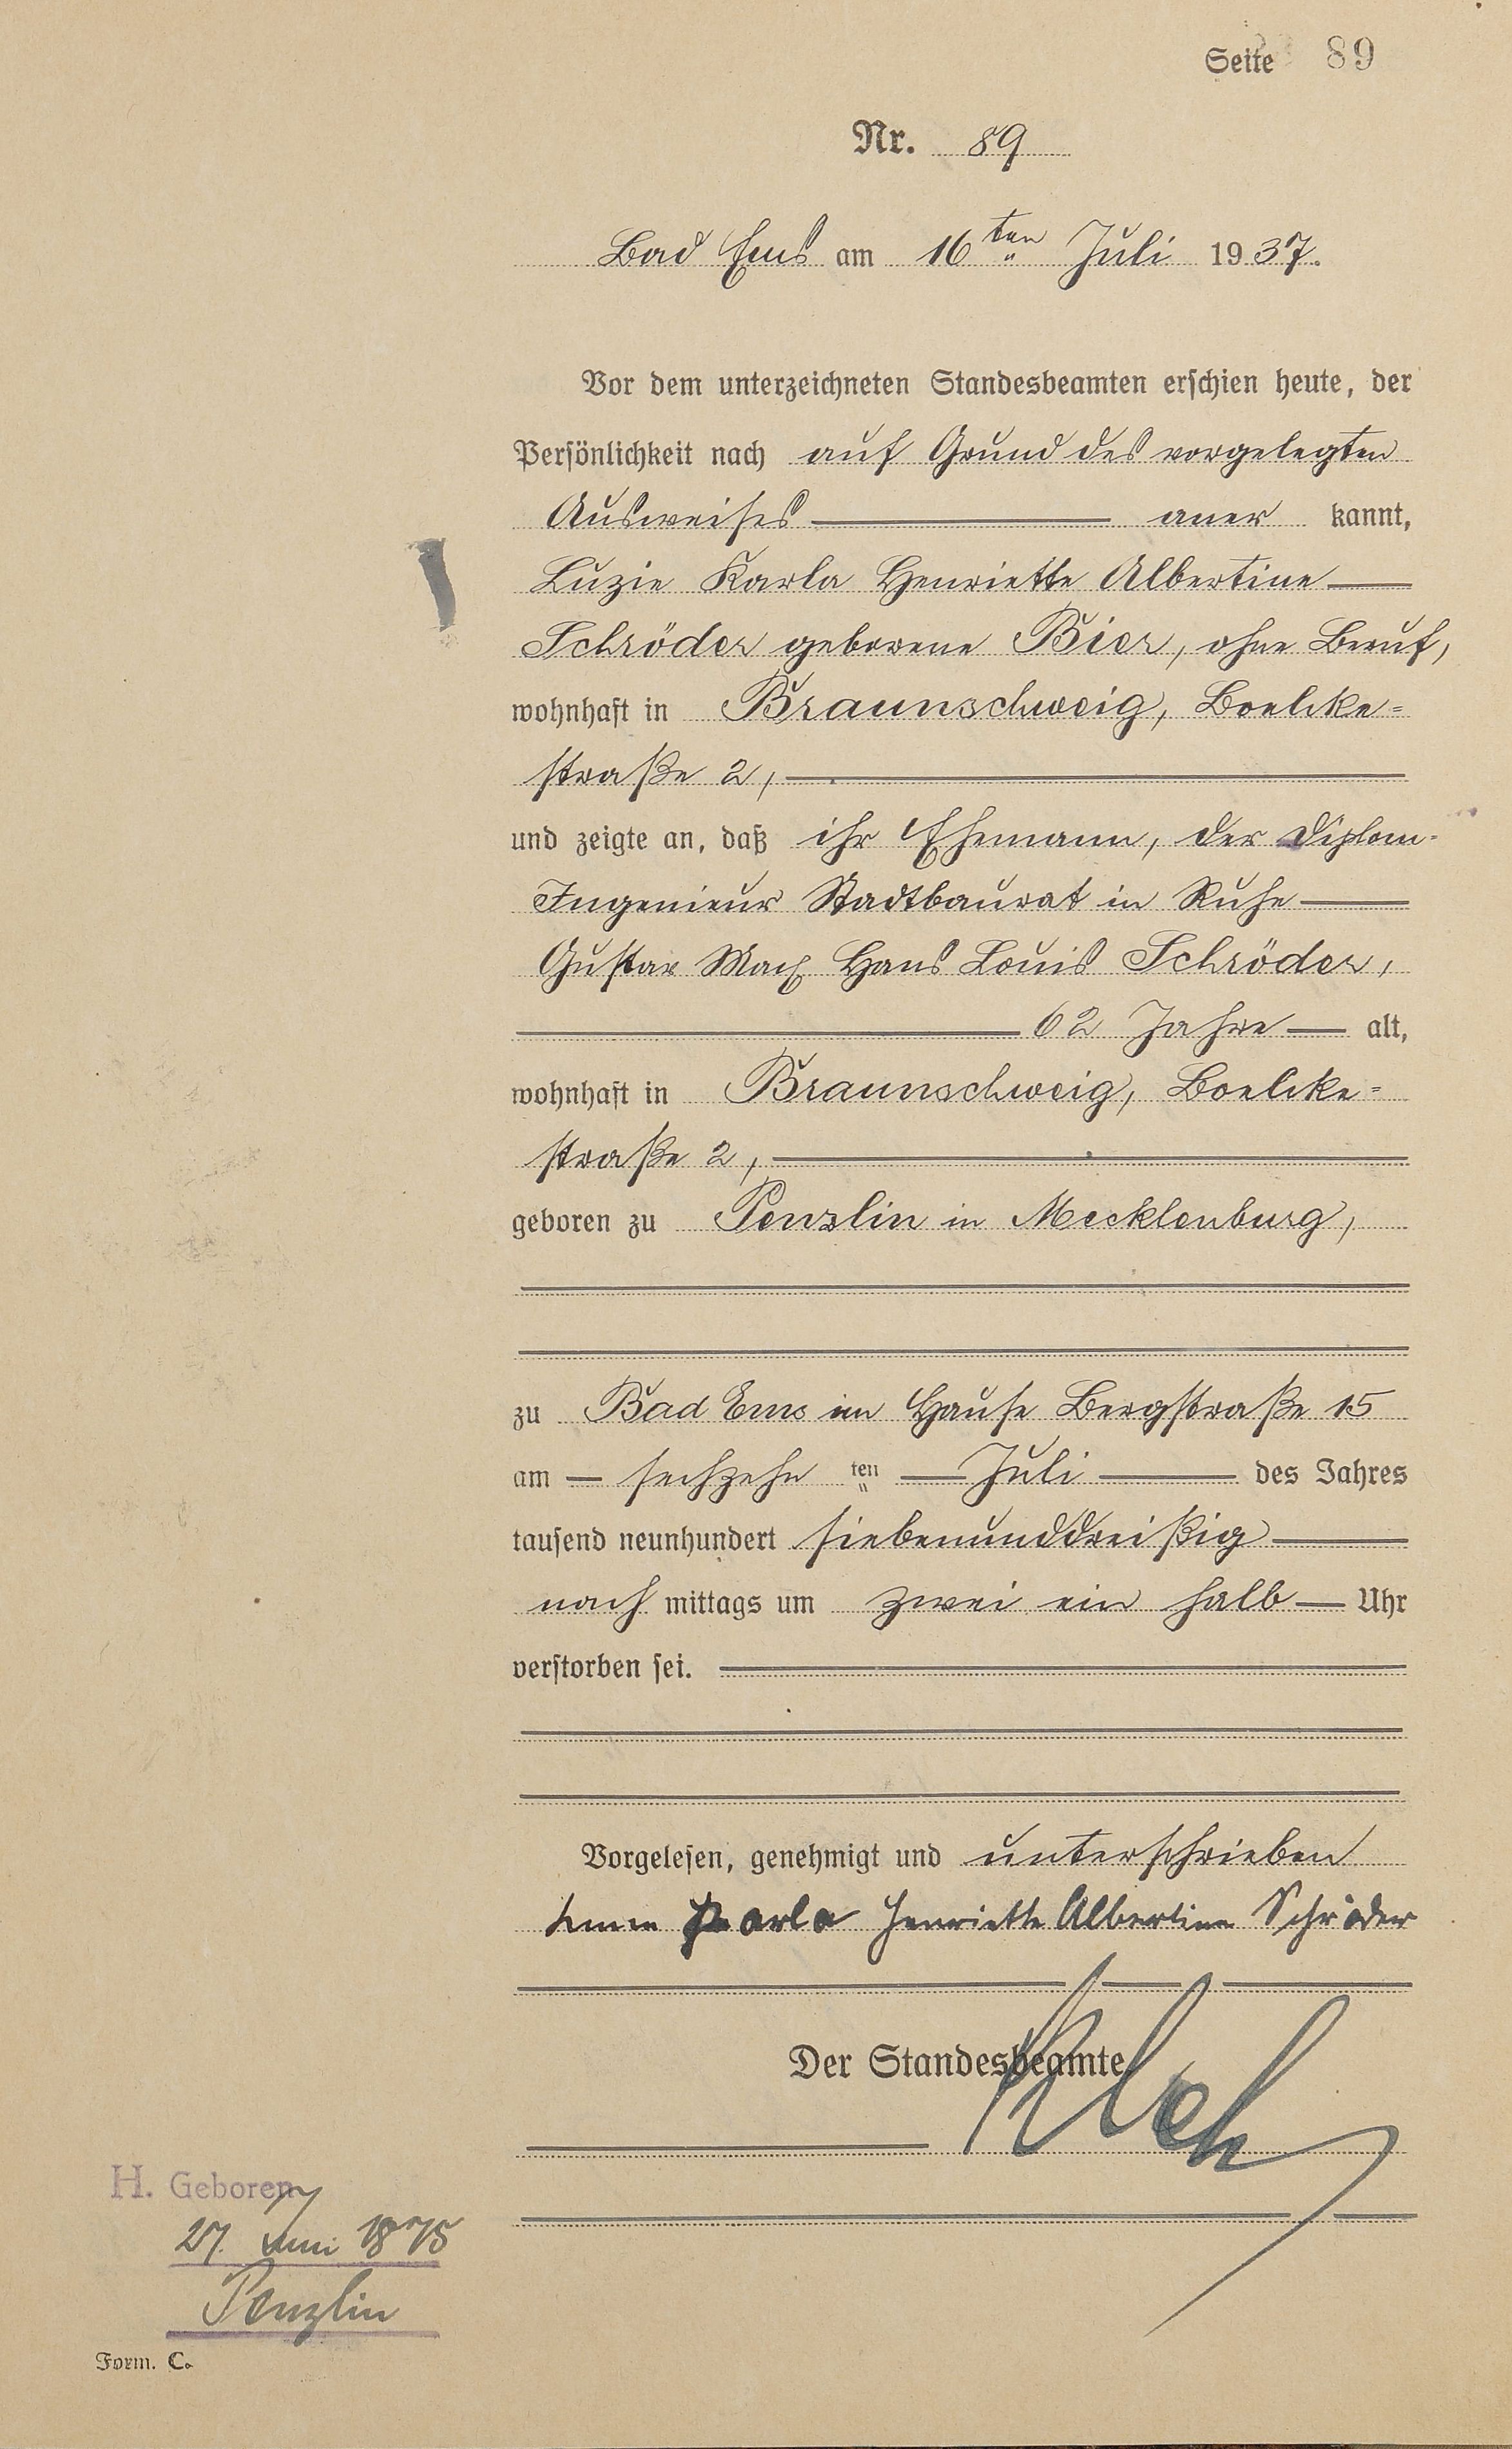 Seite 89
Nr. 89
Bad Ems am 16ten Juli 1937.
Vor dem unterzeichneten Standesbeamten erschien heute, der
Persönlichkeit nach auf Grund des vorgelegten
Ausweises aner kannt,
Luzie Karla Henriette Albertine
Schröder geborene Bier, ohne Beruf,
wohnhaft in Braunschweig, Boelcke=
straße 2,
und zeigte an, daß ihr Ehemann, der Diplom-
Ingenieur Stadtbaurat in Ruhe
Gustav Max Hans Louis Schröder,
62 Jahre alt,
wohnhaft in Braunschweig, Boelcke=
straße 2,
geboren zu Penzlin in Mecklenburg,
zu Bad Ems im Hause Bergstraße 15
am sechzehn ten Juli des Jahres
tausend neunhundert siebenunddreißig
nach mittags um zwei ein halb Uhr
verstorben sei.
Vorgelesen, genehmigt und unterschrieben
Karla Henriette Albertine Schröder
Der Standesbeamte
H. Geboren
27. Juni 1875
Penzlin
Form. C.